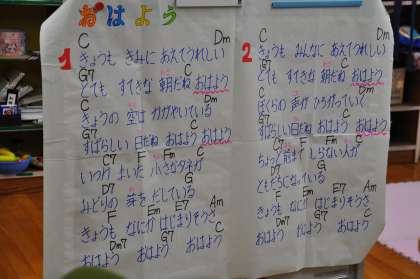 おはよう
1
C Dm
きょうも きみに あえてうれしい
G7 C
とても すてきな 朝だね おはよう
C Dm
きょうの 空は かがやいている
G7 C
すばらしい 日だね おはよう おはよう
C7 F G7 C
いつか まいた 小さなタネが
G7 Dm
みどりの 芽をだしている
F Em E7 Am
きょうも なにか はじまりそうさ
Dm7 G7 C
おはよう おはよう おはよう
2
C Dm
きょうも みんなに あえてうれしい
G7 C
とても すてきな 朝だね おはよう
C Dm
ぼくらの 声が ひろがっていく
G7 C
すばらしい 日だね おはよう おはよう
C7 F Em C
ちょっと 前まで しらない人が
Dm G7
ともだちに なっている
F Em E7 Am
きょうも なにか はじまりそうさ
Dm7 G7 C
おはよう おはよう おはよう